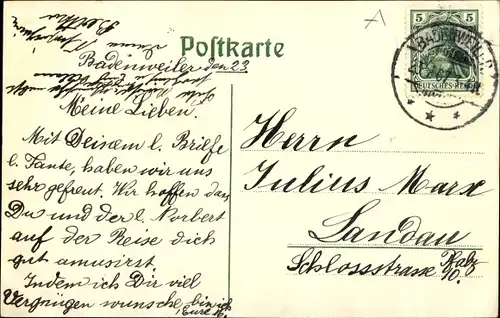 Postkarte
Badenweiler den 23.
Meine Lieben.
Mit Deinem l. Briefe
l. Tante, haben wir uns
sehr gefreut. Wir hoffen das
Du und der l. Norbert
auf der Reise dich
gut amusirst
Indem ich Dir viel
Vergnügen wünsche, bin ich
Eure
Herrn
Julius Marx
Landau
Schlossstrasse Pfalz
5 5
BADENWEILER
DEUTSCHES REICH